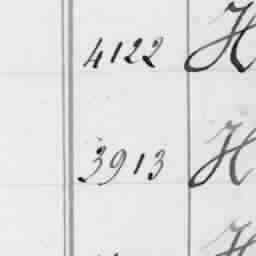 4122 H
3913 H
H